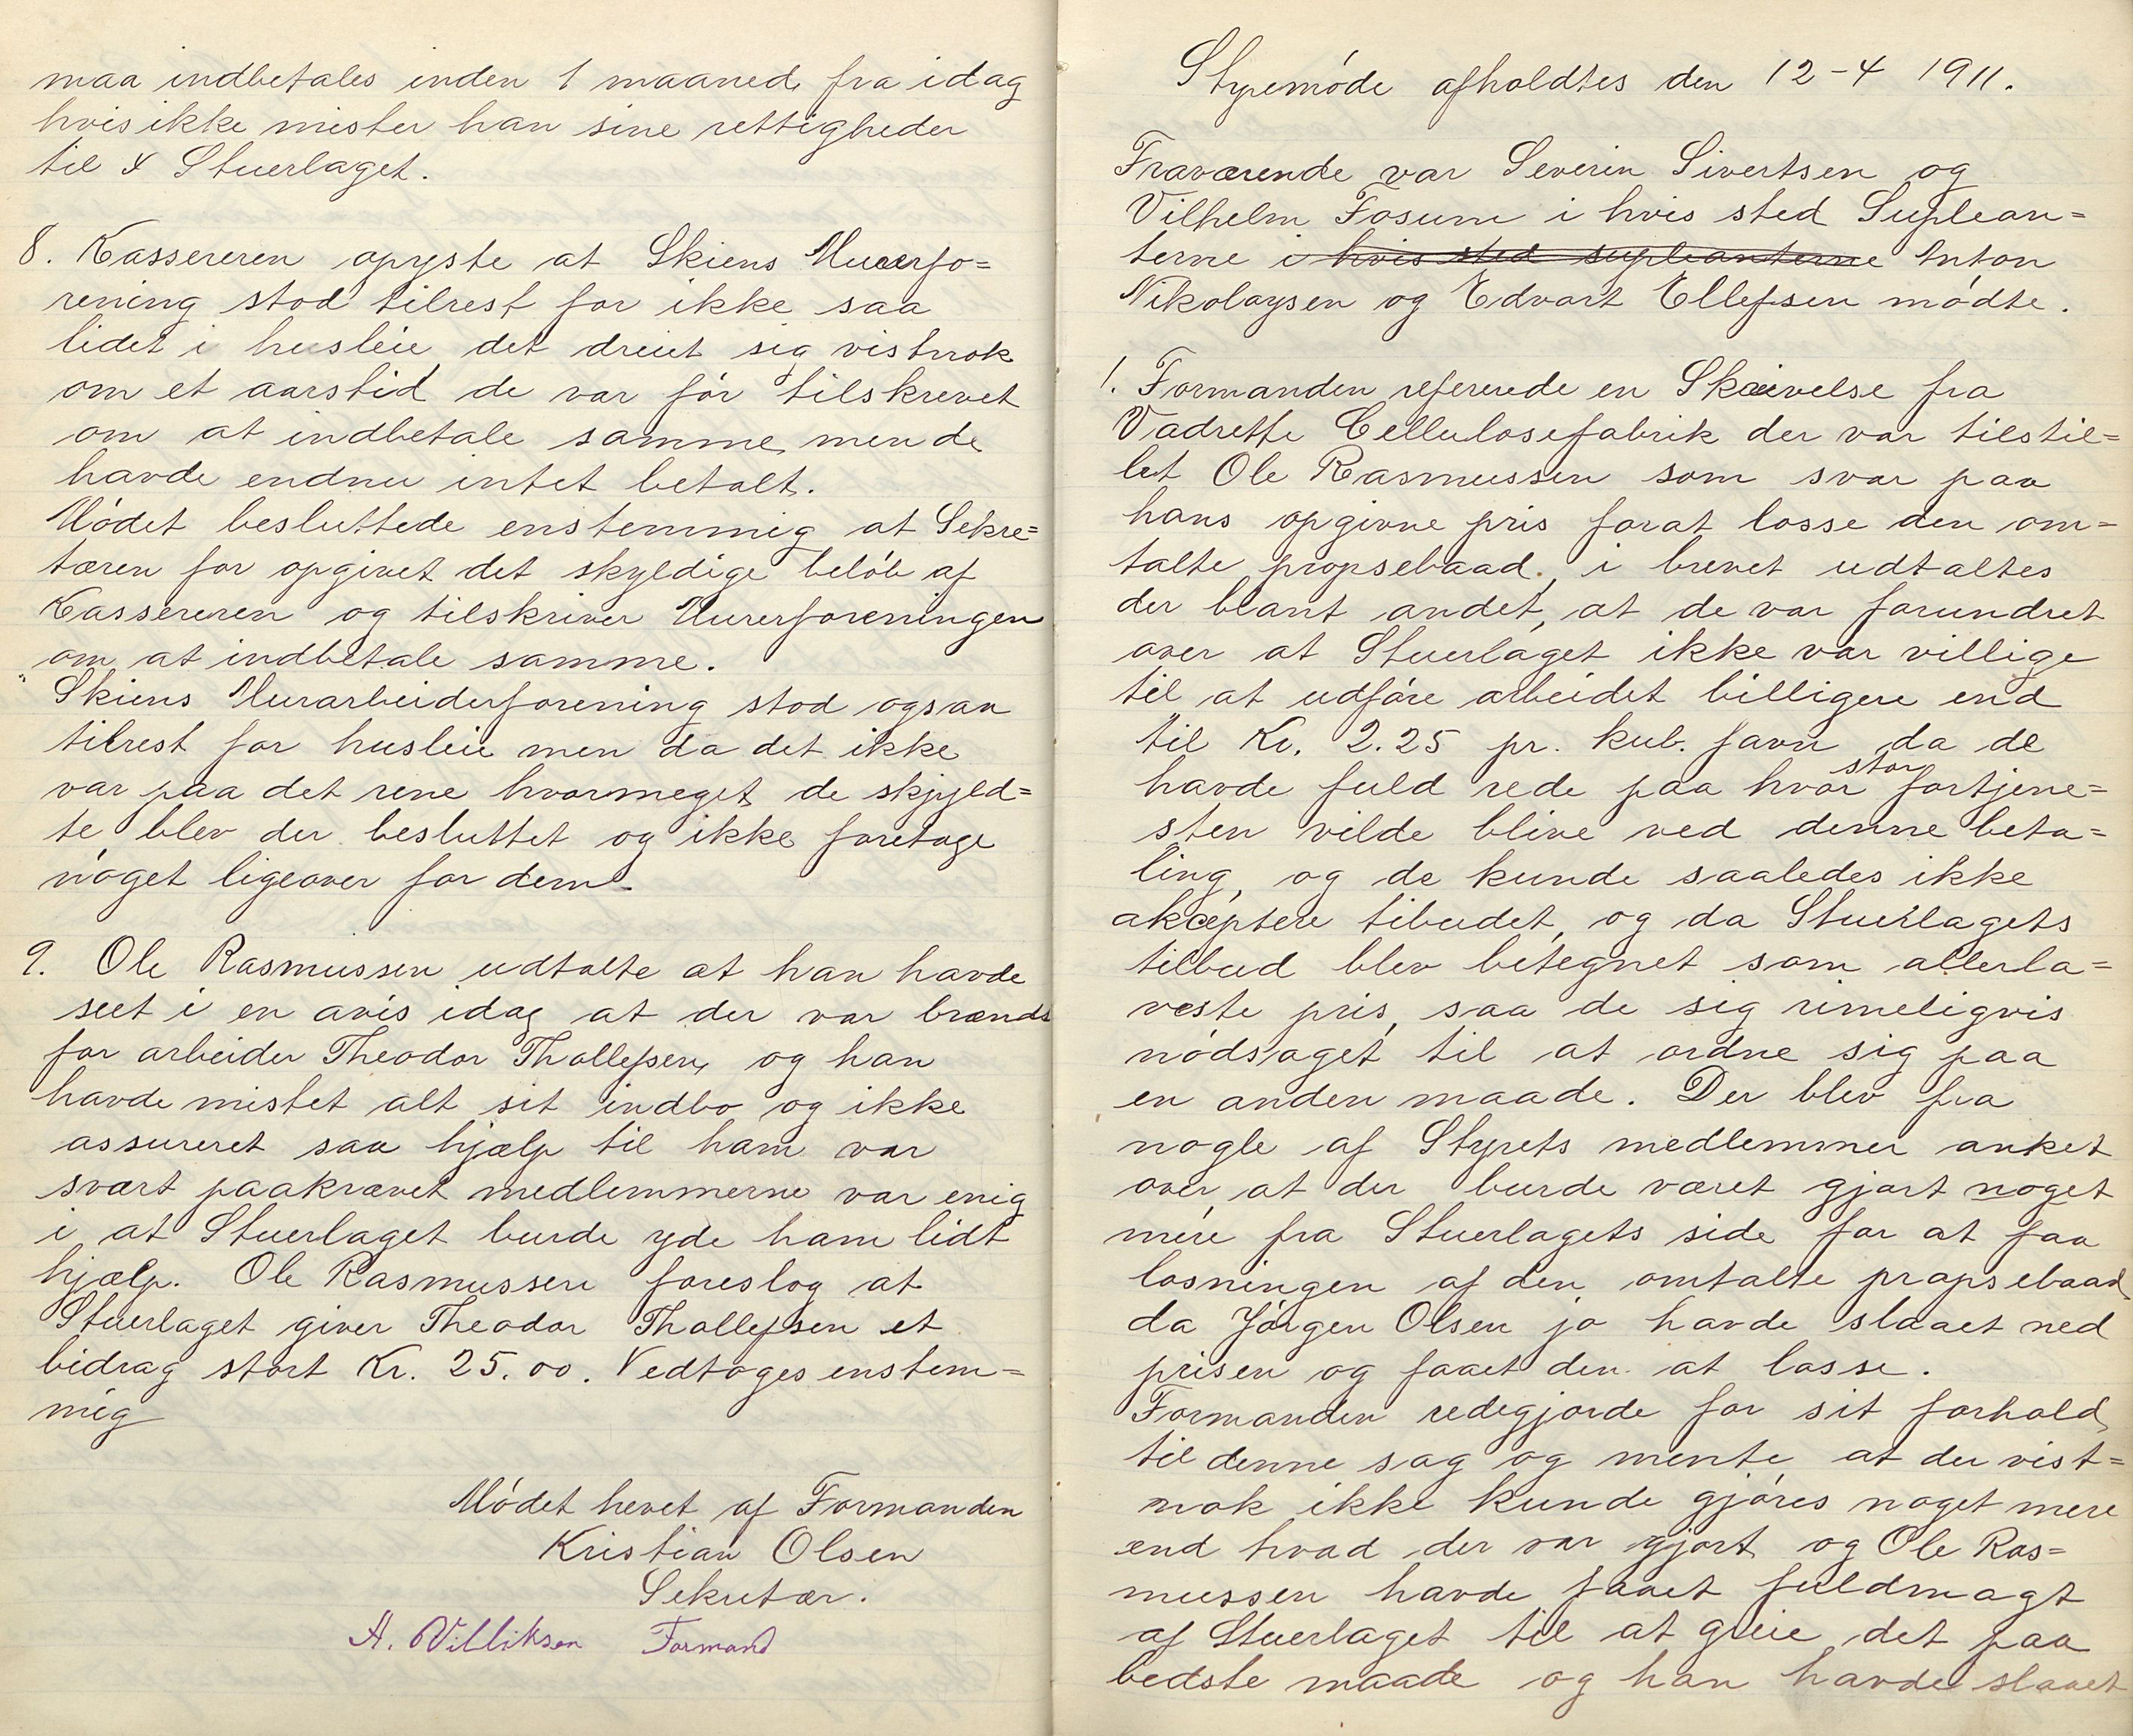 maa indbetales inden 1 maaned fra idag
hvis ikke mister han sine rettigheder
til x Stuerlaget.
8. Kassereren opyste at Skiens Murerfo=
rening stod tilrest for ikke saa
lidet i husleie det dreiet sig vistnok
om et aarstid de var før tilskrevet
om at indbetale samme, men de
havde endnu intet betalt.
Mødet besluttede enstemmig at Sekre=
tæren for opgivet det skyldige beløb af
Kassereren og tilskriver Murerforeningen
om at indbetale samme.
Skiens Murarbeiderforening stod ogsaa
tilrest for husleie men da det ikke
var paa det rene hvormeget de skjyld=
te blev der besluttet og ikke foretage
noget ligeover for dem.
9. Ole Rasmussen udtalte at han havde
seet i en avis idag at der var brændt
for arbeider Theodor Thollefsen, og han
havde mistet alt sit indbo og ikke
assureret saa hjælp til ham var
svært paakrævet medlemmerne var enig
i at Stuerlaget burde yde ham lidt
hjælp. Ole Rasmussen foreslog at
Stuerlaget giver Theodor Thollefsen et
bidrag stort Kr. 25.00. Vedtoges enstem=
mig
Mødet hevet af Formanden
Kristian Olsen
Sekretær.
A. Villiksen Formand
Styremøde afholdtes den 12-4 1911.
Fraværende var Severin Sivertsen og
Vilhelm Fosum i hvis sted Suplean=
terne i hvis sted supleanterne Anton
Nikolaysen og Edvart Ellefsen mødte.
1. Formanden refererede en Skrivelse fra
Vadrette Cellulosefabrik der var tilstil=
let Ole Rasmussen som svar paa
hans opgivne pris forat losse den om=
talte propsebaad. i brevet udtaltes
der blant andet, at de var forundret
over at Stuerlaget ikke var villige
til at udføre arbeidet billigere end
til Kr. 2.25 pr. kub. favn da de
havde fuld rede paa hvor stor fortjene=
sten vilde blive ved denne beta=
ling, og de kunde saaledes ikke
akceptere tibudet, og da Stuerlagets
tilbud blev betegnet som allerla=
veste pris, saa de sig rimeligvis
nødsaget til at ordne sig paa
en anden maade. Der blev fra
nogle af Styrets medlemmer anket
over at der burde været gjort noget
mere fra Stuerlagets side for at faa
losningen af den omtalte propsebaad
da Jørgen Olsen jo havde slaaet ned
prisen og faaet den at losse.
Formanden redegjorde for sit forhold
til denne sag og mente at der vist=
nok ikke kunde gjøres noget mere
end hvad der var gjort og Ole Ras=
mussen havde faaet fuldmagt
af Stuerlaget til at greie det paa
bedste maade og han havde slaaet